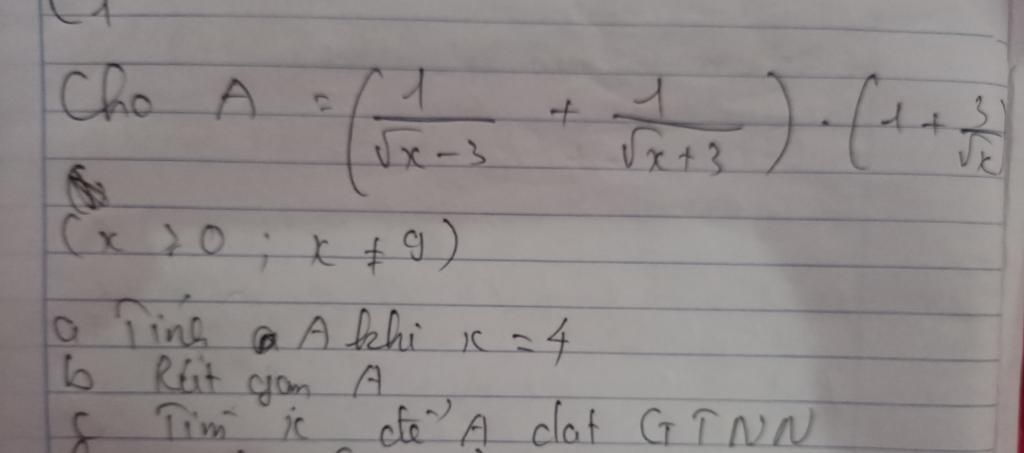 Cho A = (1/(√x - 3) + 1/(√x + 3)) . (1 + 3/√x)
(x > 0 ; x ≠ 9)
a Tính A khi x = 4
b Rút gọn A
c Tìm x để A đat GTNN